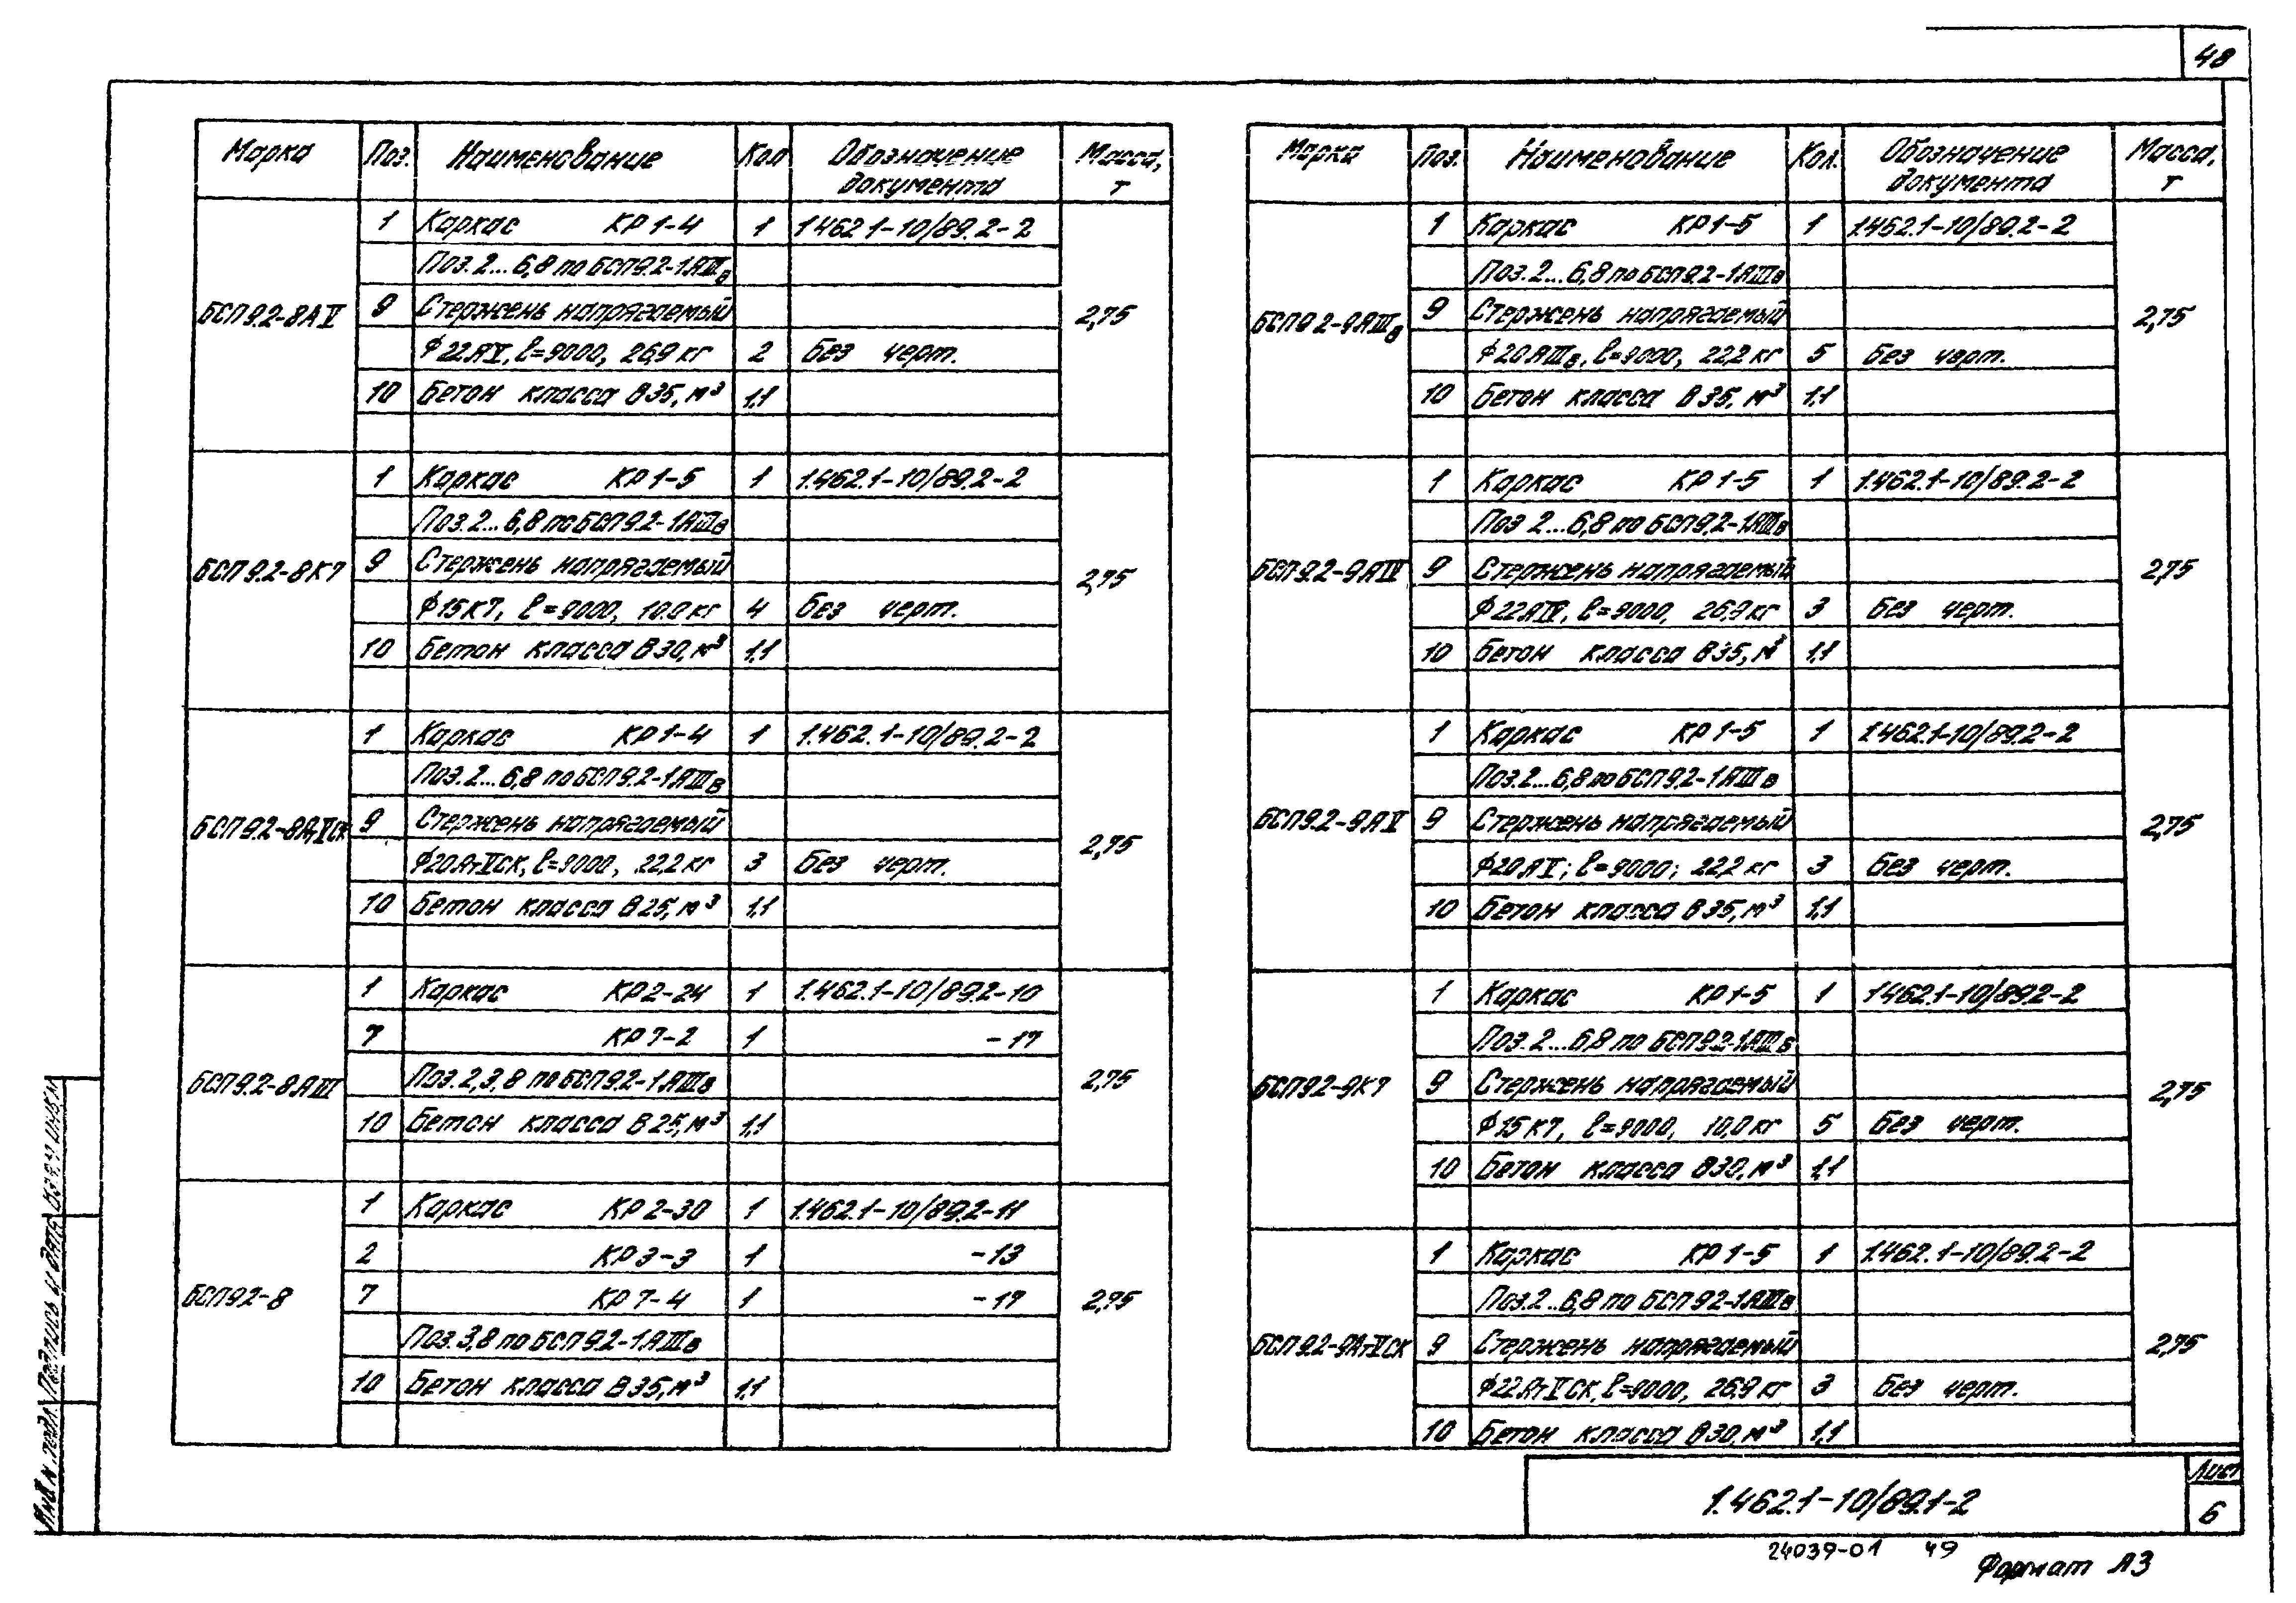 48
Марка Поз. Наименование Кол Обозначение документа Масса, т
БСП9.2-8АV 2,75
1 Каркас КР1-4 1 1.462.1-10/89.2-2
Поз.2...6,8 по БСП9.2-1АIIIв
9 Стержень напрягаемый
ϕ22АV, ℓ=9000, 26,9 кг 2 Без черт.
10 Бетон класса В35, м³ 1,1
БСП9.2-8К7 2,75
1 Каркас КР1-5 1 1.462.1-10/89.2-2
Поз.2...6,8 по БСП9.2-1АIIIв
9 Стержень напрягаемый
ϕ15К7, ℓ=9000, 10.0 кг 4 Без черт.
10 Бетон класса В30, м³ 1,1
2,75
1 Каркас КР1-4 1 1.462.1-10/89.2-2
Поз.2...6,8 по БСП9.2-1АIIIв
9 Стержень напрягаемый
ϕ20АтVСК, ℓ=9000, 22,2 кг 3 Без черт.
10 Бетон класса В25, м³ 1,1
БСП9.2-8АIII 2,75
1 Каркас КР2-24 1 1.462.1-10/89.2-10
7 КР7-2 1 -17
Поз.2,3,8 по БСП9.2-1АIIIв
10 Бетон класса В25, м³ 1,1
БСП9.2-8 2,75
1 Каркас КР2-30 1 1.462.1-10/89.2-11
2 КР3-3 1 -13
7 КР7-4 1 -17
Поз.3,8 по БСП9.2-1АIIIв
10 Бетон класса В35, м³ 1,1
Марка Поз. Наименование Кол. Обозначение документа Масса, т
БСП9.2-9АIIIв 2,75
1 Каркас КР1-5 1 1.462.1-10/89.2-2
Поз.2...6,8 по БСП9.2-1АIIIв
9 Стержень напрягаемый
ϕ20АIIIв, ℓ=9000, 22,2 кг 5 Без черт.
10 Бетон класса В35, м³ 1,1
БСП9.2-9АIV 2,75
1 Каркас КР1-5 1 1.462.1-10/89.2-2
Поз 2...6,8 по БСП9.2-1АIIIв
9 Стержень напрягаемый
ϕ22АIV, ℓ=9000, 26,9 кг 3 Без черт.
10 Бетон класса В35, м³ 1,1
БСП9.2-9АV 2,75
1 Каркас КР1-5 1 1.462.1-10/89.2-2
Поз.2...6,8 по БСП9.2-1АIIIв
9 Стержень напрягаемый
ϕ20АV; ℓ=9000; 22,2 кг 3 Без черт.
10 Бетон класса В35, м³ 1,1
БСП9.2-9К7 2,75
1 Каркас КР1-5 1 1.462.1-10/89.2-2
Поз.2...6,8 по БСП9.2-1АIIIв
9 Стержень напрягаемый
ϕ15К7, ℓ=9000, 10,0 кг 5 Без черт.
10 Бетон класса В30, м³ 1,1
БСП9.2-9АтVСК 2,75
1 Каркас КР1-5 1 1.462.1-10/89.2-2
Поз.2...6,8 по БСП9.2-1АIIIв
9 Стержень напрягаемый
ϕ22АтVСК, ℓ=9000, 26,9 кг 3 Без черт.
10 Бетон класса В30, м³ 1,1
1.462.1-10/89.1-2
Лист
6
24039-01 49
Формат А3
Инв N подл. Подпись и дата